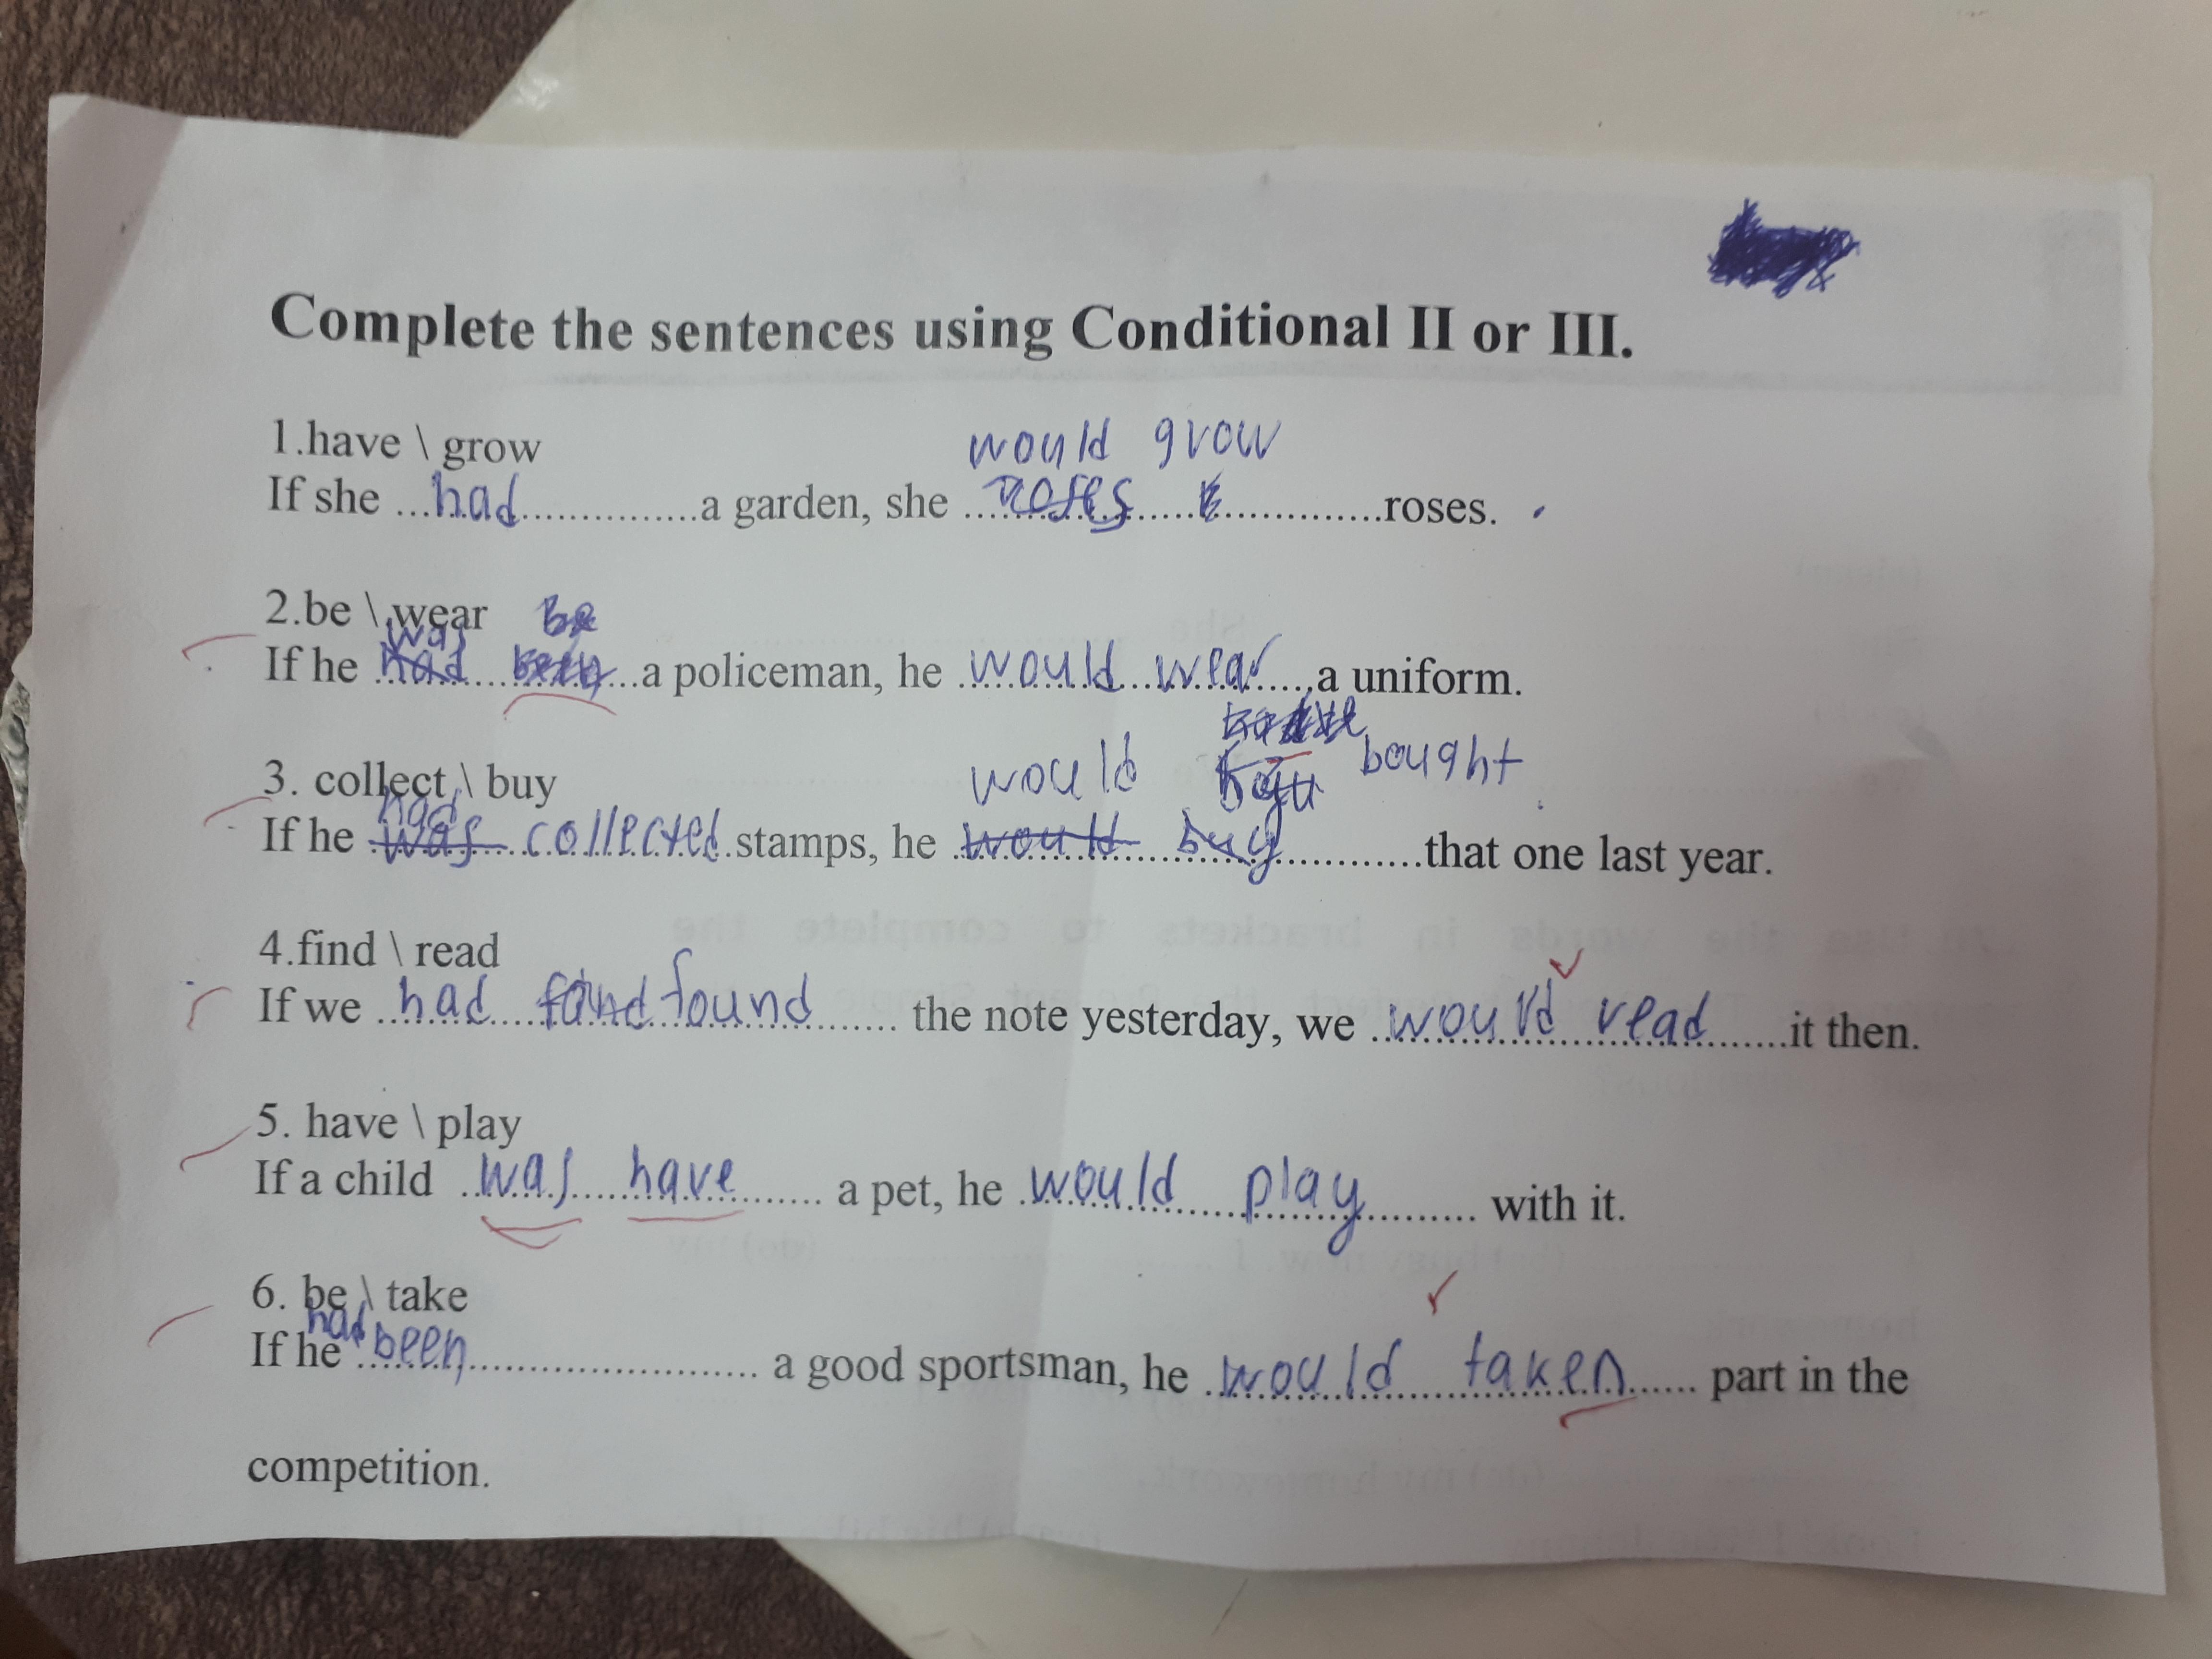 Complete the sentences using Conditional II or III.
1.have \ grow
would grow
If she ...had.................a garden, she .................................roses.
2.be \ wear be
was
If he ..............................a policeman, he ...would wear....a uniform.
would bought
3. collect \ buy
had
If he was collected stamps, he would buy..............that one last year.
4.find \ read
If we ...had found........ the note yesterday, we ..would read......it then.
5. have \ play
If a child ..was have........ a pet, he .would play.......... with it.
6. be \ take
had
If he been............................ a good sportsman, he ..would taken...... part in the
competition.